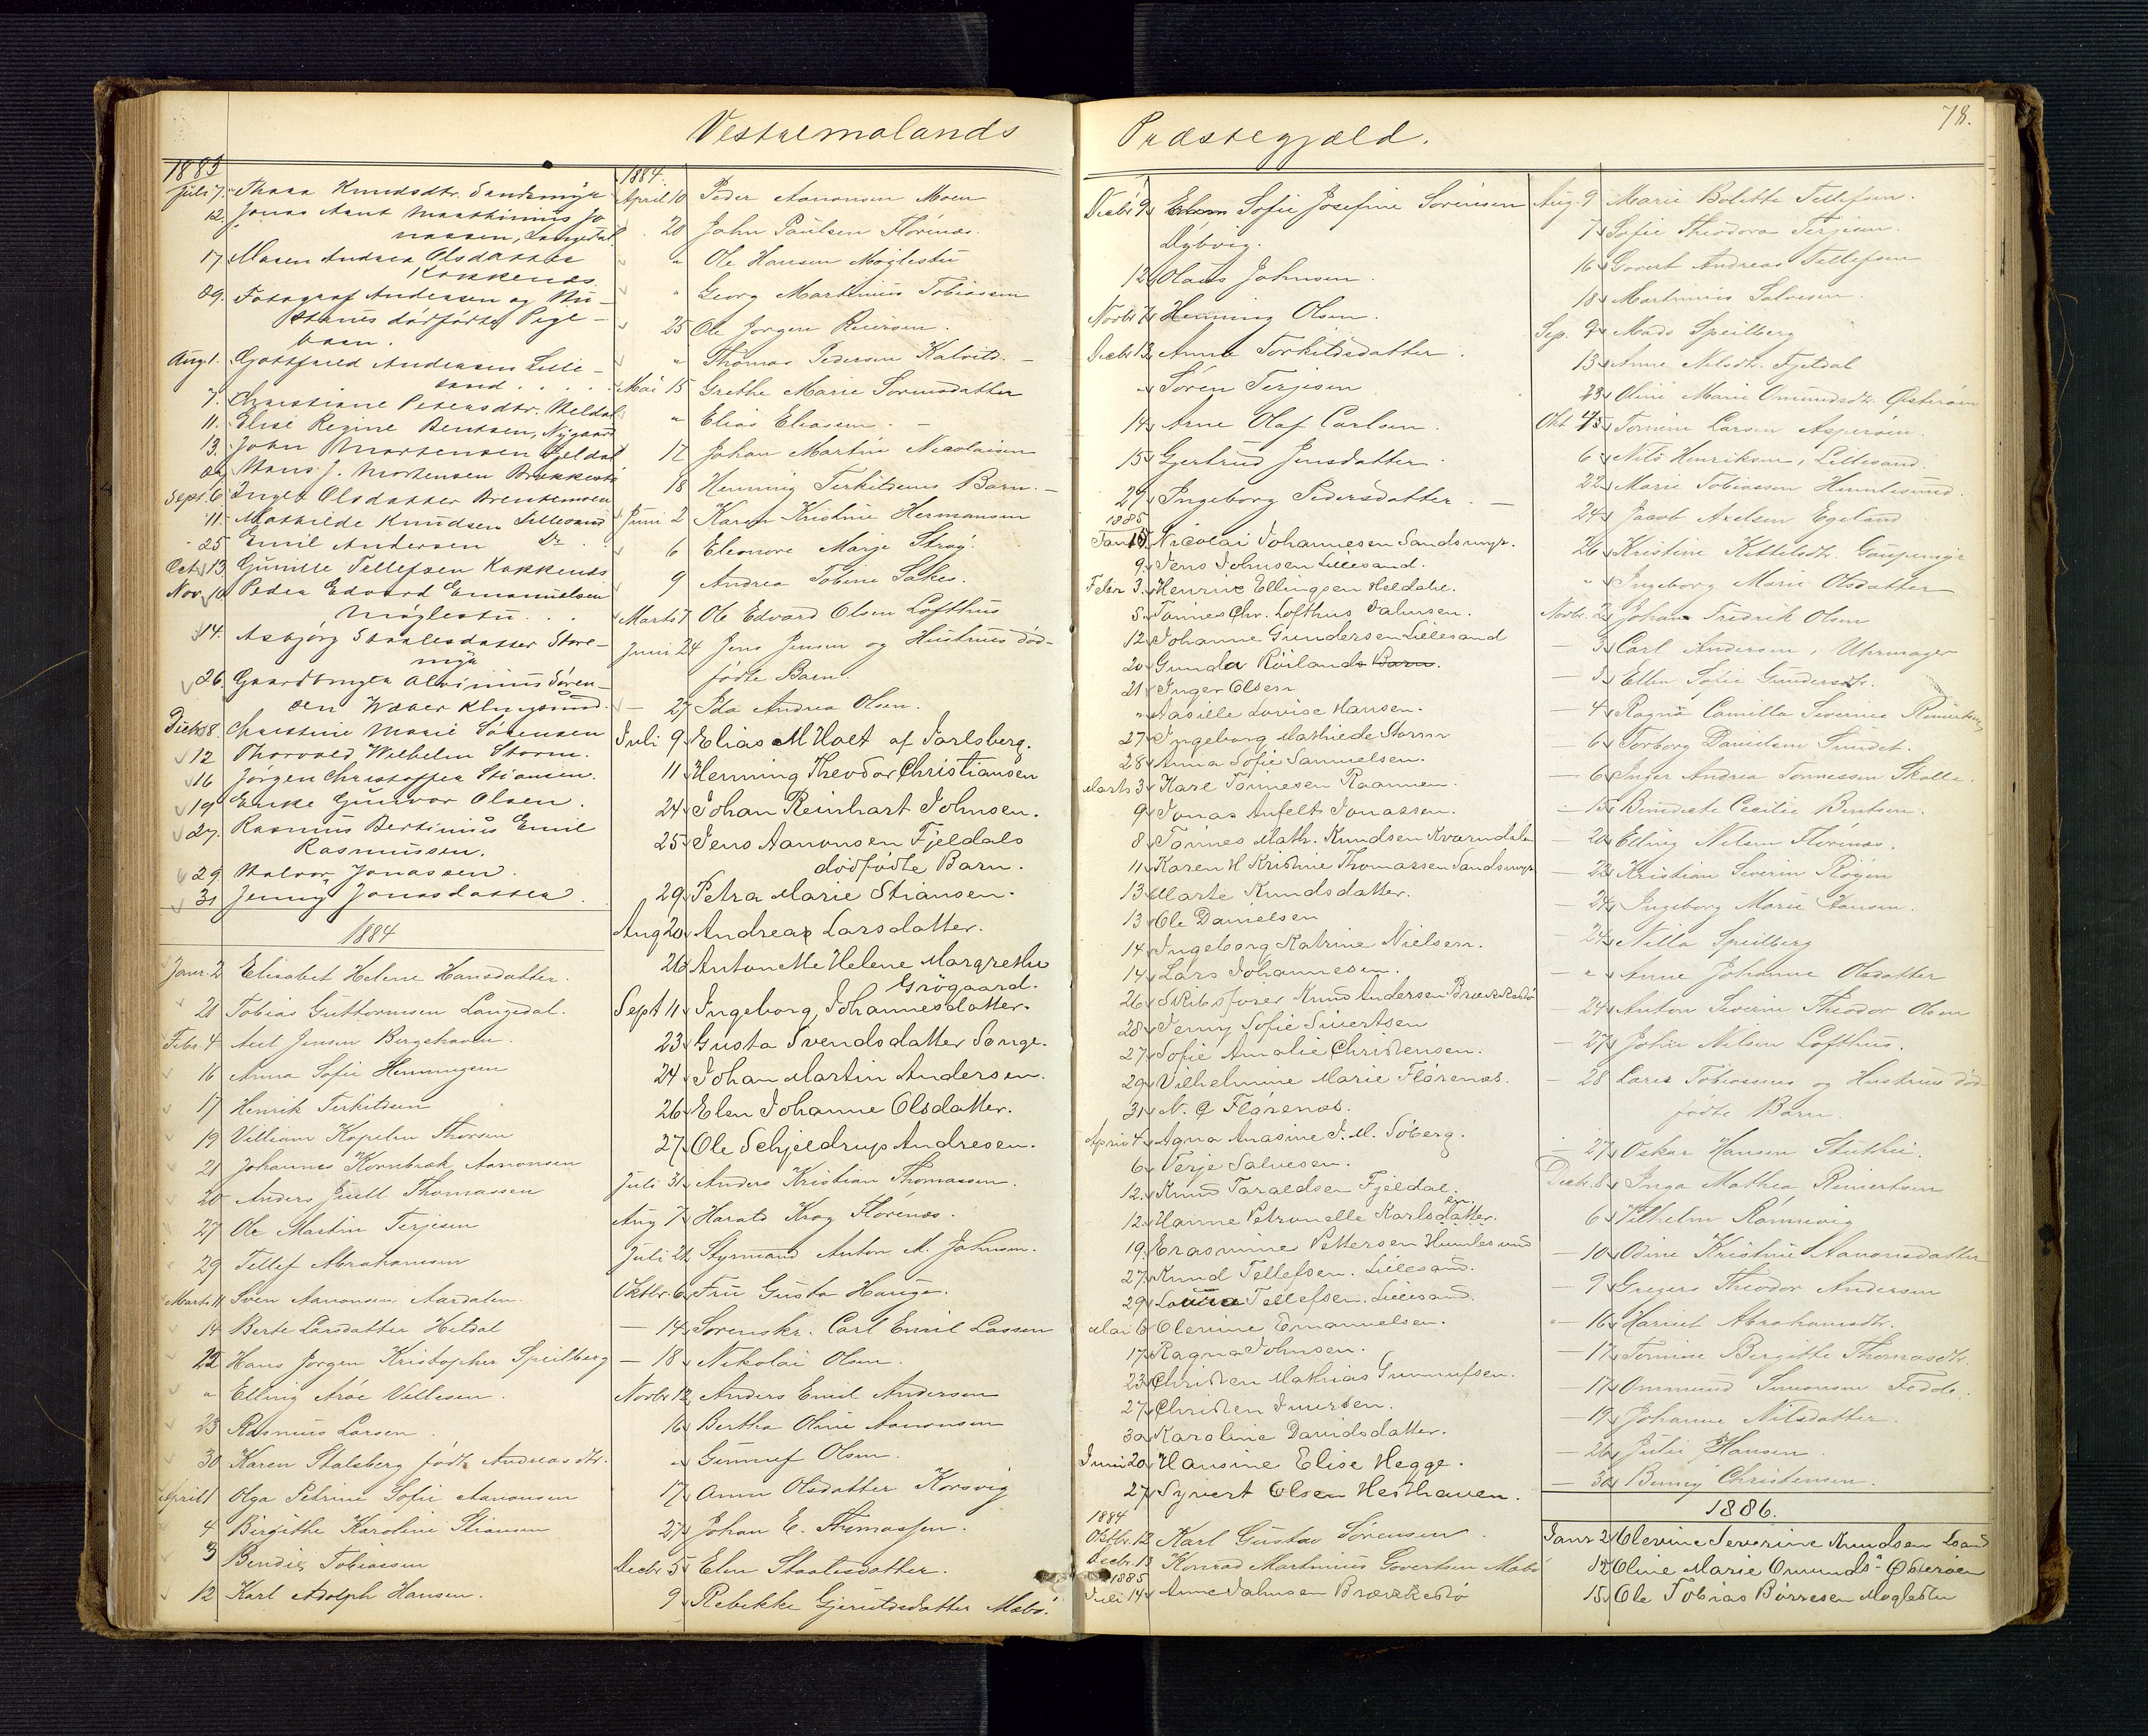 Vestremolands Præstegjæld.
78.
1883
Juli 7. Thora Knudsdtr. Sandsmyr
12. Jonas Aant Marthinius Jo
nassen, Langedal
17. Maren Andrea Olsdatter
Kokkenes
29. Fotograf Andersen og Hu-
struес dödfödte Pige-
barn.
Aug. 1. Gottfried Andersen Lille-
sand
7. Christiane Petersdtr. Heldal
11. Elise Regine Bentsen, Nygaard
13. John Mortensen Fjeldal
Hans J. Mortensen Brekkestö
Sept. 6 Inger Olsdatter Brentemoen
11. Mathilde Knudsen Lillesand
25 Emil Andersen Do
Oct. 13 Gunille Tellefsen Kokkenes
Nov. 10 Peder Edvard Emanuelsen
Möglestu
14. Asbjörg Staalesdatter Store-
myr
26. Gaardbruger Alvinius Sören-
sen Wæver Klingsund.
Decbr 8. Christine Marie Sörensen
12 Thorvald Wilhelm Storm.
16 Jörgen Christoffer Stiansen.
19 Enke Gunvor Olsen.
27. Rasmus Bertinius Emil
Rasmussen.
29 Halvor Jonassen.
31 Jenny Jonasdatter.
1884
Janr. 2 Elisabet Helene Hansdatter.
21 Tobias Guttormsen Langedal.
Febr. 4 Axel Jensen Bergshaven.
16 Anna Sofie Henningsen
17 Henrik Terkildsen
19 Villiam Kapelen Thorsen
21 Johannes Kornbrek Aanonsen
20 Anders Juell Thomassen
27 Ole Martin Terjesen
29 Tellef Abrahamsen
Marts 11 Sven Aanonsen Aardalen.
14 Berte Larsdatter Heldal
22 Hans Jörgen Kristopher Speilberg
" Elling Aröe Villesen.
23 Rasmus Larsen.
30 Karen Stalsberg födt Andreasdtr.
April 1 Olga Petrine Sofie Aanonsen
4 Birgithe Karoline Stiansen
3 Bendix Tobiassen
12 Karl Adolph Hansen.
1884.
April 10 Peder Aanonsen Moen
20 John Paulsen Flörenæs.
" Ole Hansen Möglestu
" Georg Martinius Tobiassen
25 Ole Jörgen Reiersen.
" Thomas Pedersen Kalvild.
Mai 15 Grethe Marie Sörensdatter
" Elias Eliassen.
17 Johan Martin Nicolaisen
18 Henning Terkildsens Barn.
Juni 2 Karen Kristine Hermansen
6 Eleonore Marje Stray.
9 Andrea Tobine Sakes.
Marts 7 Ole Edvard Olsen Lofthus
Juni 24 Jens Jensen og Hustrues död-
födte Barn.
27 Ida Andrea Olsen.
Juli 9 Elias M Holt af Jarlsberg.
11 Henning Theodor Christiansen
24 Johan Reinhart Johnsen.
25 Jens Aanonsen Fjeldals
dödfödte Barn.
29 Petra Marie Stiansen.
Aug 20 Andrea Larsdatter.
26 Antonette Helene Margrethe
Grögaard.
Sept 11 Ingeborg Johannesdatter.
23 Gusta Svendsdatter Songe.
24 Johan Martin Andersen.
26 Elen Johanne Olsdatter.
27 Ole Schjeldrup Andresen.
Juli 31 Anders Kristian Thomassen.
Aug 7 Harald Krog Flörenæs.
Juli 21 Styrmand Anton M. Johnsen.
Oktbr. 6 Fru Gusta Hauge.
— 14 Sorenskr. Carl Emil Lassen
— 18 Nikolai Olsen.
Novbr 12 Anders Emil Andersen
16 Bertha Oline Aanonsen
" Gunnuf Olsen.
17 Anne Olsdatter Korsvig
27 Johan E. Thomassen.
Decbr 5 Elen Staalesdatter.
9 Rebekke Gjeruldsdatter Mæbö.
Decbr 9 Sofie Josefine Sörensen
Dybvig.
12 Olaus Johnsen.
Novbr 7 Henning Olsen.
Decbr 13 Anne Torkildsdatter.
" Sören Terjesen
14 Arne Olaf Carlsen.
15 Gjertrud Jensdatter.
29 Ingeborg Pedersdatter.
1885
Jan 6 Nicolai Johannesen Sandsmyr.
9. Jens Johnsen Lillesand.
Febr 3. Henrik Ellingsen Heldale.
5 Tønnes Chr. Lofthus Salmsen.
12 Johanne Gundersen Lillesand
20 Gunda Röilands Barn.
21 Inger Olsen
" Aasille Lovise Hansen.
27 Ingeborg Mathilde Storm
28 Anna Sofie Samuelsen.
Marts 3 Karl Tönnesen Raannen.
9 Jonas Anfelt Jonassen.
8 Tönnes Math. Knudsen Kvarndalen
11 Karen H Kristine Thomassen Sandsmyr
13 Marte Knudsdatter.
13 Ole Danielsen
14 Ingeborg Katrine Nielsen.
14 Lars Johannesen.
26 Skibsförer Knud Andersen Brækkestö
28 Jenny Sofie Sivertsen
27 Sofie Amalie Christensen.
29 Vilhelmine Marie Flörenæs.
31 N. Q Flörenæs.
April 4 Agna Anasine J. M. Söberg.
6 Terje Salvesen.
12 Knud Taraldsen Fjeldal.
12 Hanne Petronelle Karlsdatter.
19 Erasmine Pettersen Humlesund
27 Knud Tellefsen. Lillesand.
29 Lovise Tellefsen. Lillesand.
Mai 6 Olevine Emanuelsen.
17 Ragna Johnsen.
23 Christen Mathias Gunnufsen.
27 Christen Iversen.
30 Karoline Davidsdatter.
Juni 20 Hansine Elise Hegge.
27 Syvert Olsen Hesthaven.
1884
Oktbr. 12 Karl Gustav Sörensen
Decbr. 13 Konrad Martinius Govertsen Mæbö
1885
Juli 14 Anne Salmsen Brækkestö
Aug. 9 Marie Bolette Tellefsen.
7 Sofie Theodora Terjesen.
16 Govert Andreas Tellefsen
18 Martinius Salvesen.
Sep. 9 Mads Speilberg
13 Anne Nilsdtr. Fjeldal
23 Oline Marie Omundsdtr. Østeröen
Okt 5 Tomine Larsen Asperöen.
6 Nils Henriksen, Lillesand.
22 Marie Tobiassen Humlesund.
24 Jacob Axelsen Egeland
26 Kristine Kittelsdtr. Gaupemyr
" Ingeborg Marie Olsdatter
Novbr. 2 Johan Fredrik Olsen
— 3 Carl Andersen, Uhrmager
— 3 Ellen Sofie Gundersdtr.
— 4 Ragna Camilla Severine Reinertsen
— 6 Torborg Danielsen Sundet.
— 6 Inger Andrea Tønnessen Skolle.
— 15 Benedicte Cecilie Bentsen.
— 20 Elling Nilsen Flörenæs.
— 22 Kristian Severin Röyen
— 24 Ingeborg Marie Hansen.
— 24 Nilla Speilberg
— " Anne Johanne Olsdatter
— 24 Anton Severin Theodor Olsen
— 27 John Nilsen Lofthus.
— 28 Lars Tobiassens og Hustrus död-
födte Barn.
27 Oskar Hansen Stuthei.
Decbr. 8 Inga Mathea Reinertsen
6 Vilhelm Rönnevig
— 10 Odine Kristine Aanonsdatter
— 9 Gregers Theodor Andersen
— 16 Harriet Abrahamsdtr.
— 17 Tomine Birgitte Thomasdtr.
— 17 Ommund Simonsen Fedde.
— 19 Johanne Nilsdatter.
— 26 Julie Hansen.
— 30 Benny Christensen.
1886.
Janr 2 Olevine Severine Knudsen Lsand
12 Oline Marie Omundsd. Østeröen
15 Ole Tobias Börresen Möglestu